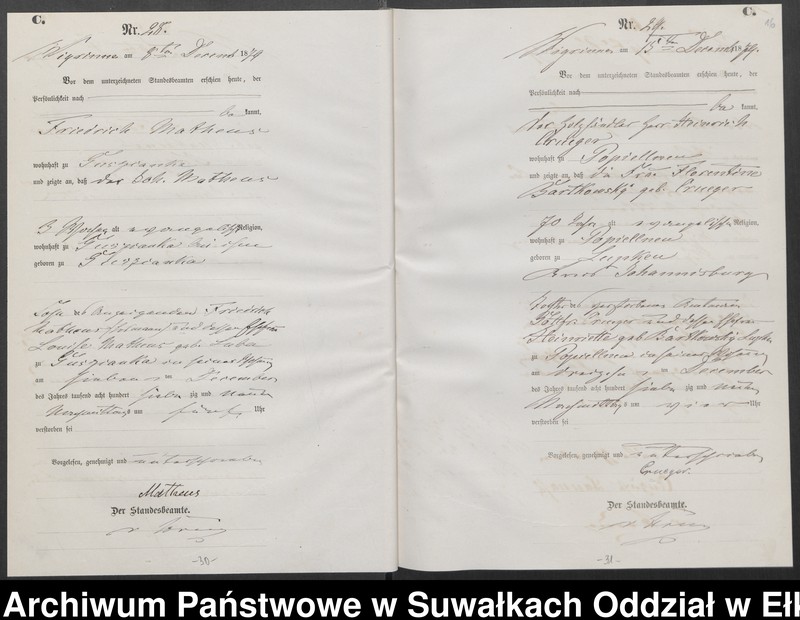 C.
Nr. 28.
am 8ten Decemb 1879
Vor dem unterzeichneten Standesbeamten erschien heute, der
Persönlichkeit nach
be kannt,
Friedrich Matheus
wohnhaft zu Guszianka
und zeigte an, daß Matheus
alt evangelischer Religion,
wohnhaft zu Guszianka bei ihm
geboren zu Guszianka
Sohn des Anzeigenden Friedrich
Matheus und dessen Ehefrau
Louise Matheus geb.
zu Guszianka in seiner Wohnung
am sieben ten December
des Jahres tausend acht hundert sieben zig und neun
Nachmittags um fünf Uhr
verstorben sei
Vorgelesen, genehmigt und unterschrieben
Matheus
Der Standesbeamte.
-30-
C.
16
Nr. 29.
am 15ten Decemb 1879.
Vor dem unterzeichneten Standesbeamten erschien heute, der
Persönlichkeit nach
be kannt,
der Holzhändler Herr Heinrich
Crueger
wohnhaft zu Popiellnen
und zeigte an, daß die Frau Florentine
Bartkowsky geb. Crueger
70 Jahr alt evangelischer Religion,
wohnhaft zu Popiellnen
geboren zu Lupken
Kreis Johannisburg
Tochter verstorbenen
Crueger und dessen Ehefrau
Heinriette geb. Bartkowsky
zu Popiellnen in seiner
am ten December
des Jahres tausend acht hundert sieben zig und neun
Nachmittags um vier Uhr
verstorben sei
Vorgelesen, genehmigt und unterschrieben
Crueger.
Der Standesbeamte.
-31-
Archiwum Państwowe w Suwałkach Oddział w Ełk